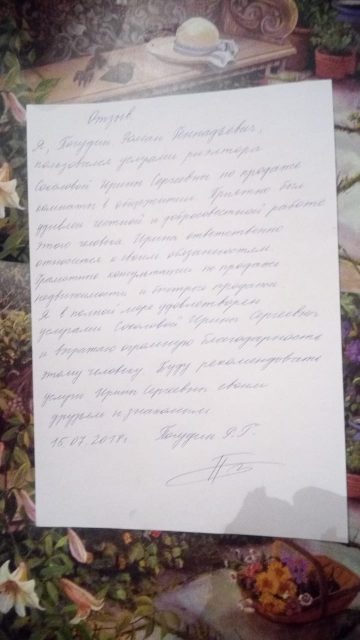 Отзыв
Я, Погудин Роман Геннадьевич,
пользовался услугами риэлтора
Соколовой Ирины Сергеевны по продаже
комнаты в общежитии. Приятно был
удивлен честной и добросовестной работе
этого человека. Ирина ответственно
относится к своим обязанностям.
Грамотные консультации по продаже
недвижимости и быстрые продажи.
Я в полной мере удовлетворен
услугами Соколовой Ирины Сергеевны
и выражаю огромную благодарность
этому человеку. Буду рекомендовать
услуги Ирины Сергеевны своим
друзьям и знакомым
15.07.2017г Погудин Р.Г.